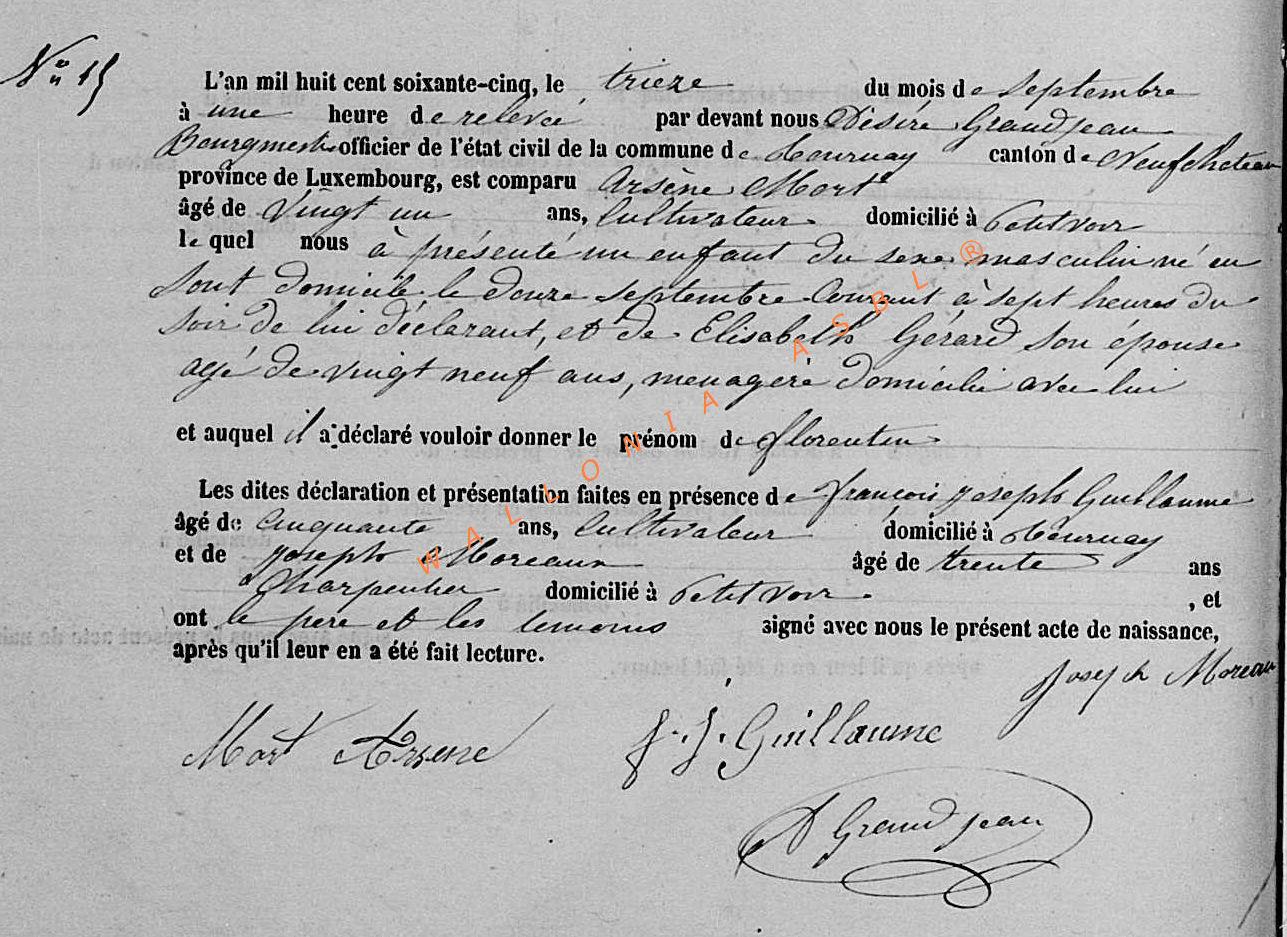 No 15
L'an mil huit cent soixante-cinq, le trieze du mois de septembre
à une heure de relevé par devant nous Désiré Grandjean
Bourgmestre officier de l'état civil de la commune de Tournay canton de Neufchateau
province de Luxembourg, est comparu Arsène Mort
âgé de vingt un ans, Cultivateur domicilié à Petitvoir
le quel nous à présenté un enfant du sexe masculin né en
sont domicile le douze septembre Courant à sept heures du
soir de lui déclarant, et de Elisabeth Gérard son épouse
agé de vingt neuf ans, menagère domicilié avec lui
et auquel il a déclaré vouloir donner le prénom de florentin
Les dites déclaration et présentation faites en présence de françois joseph Guillaume
âgé de Cinquante ans, Cultivateur domicilié à Tournay
et de joseph Moreaux âgé de trente ans
Charpentier domicilié à Petitvoir , et
ont le père et les temoins signé avec nous le présent acte de naissance,
après qu'il leur en a été fait lecture.
Joseph Moreau
Mort Arsene
f. j. Guillaume
D Grandjean
WALLONIA ASBL ®